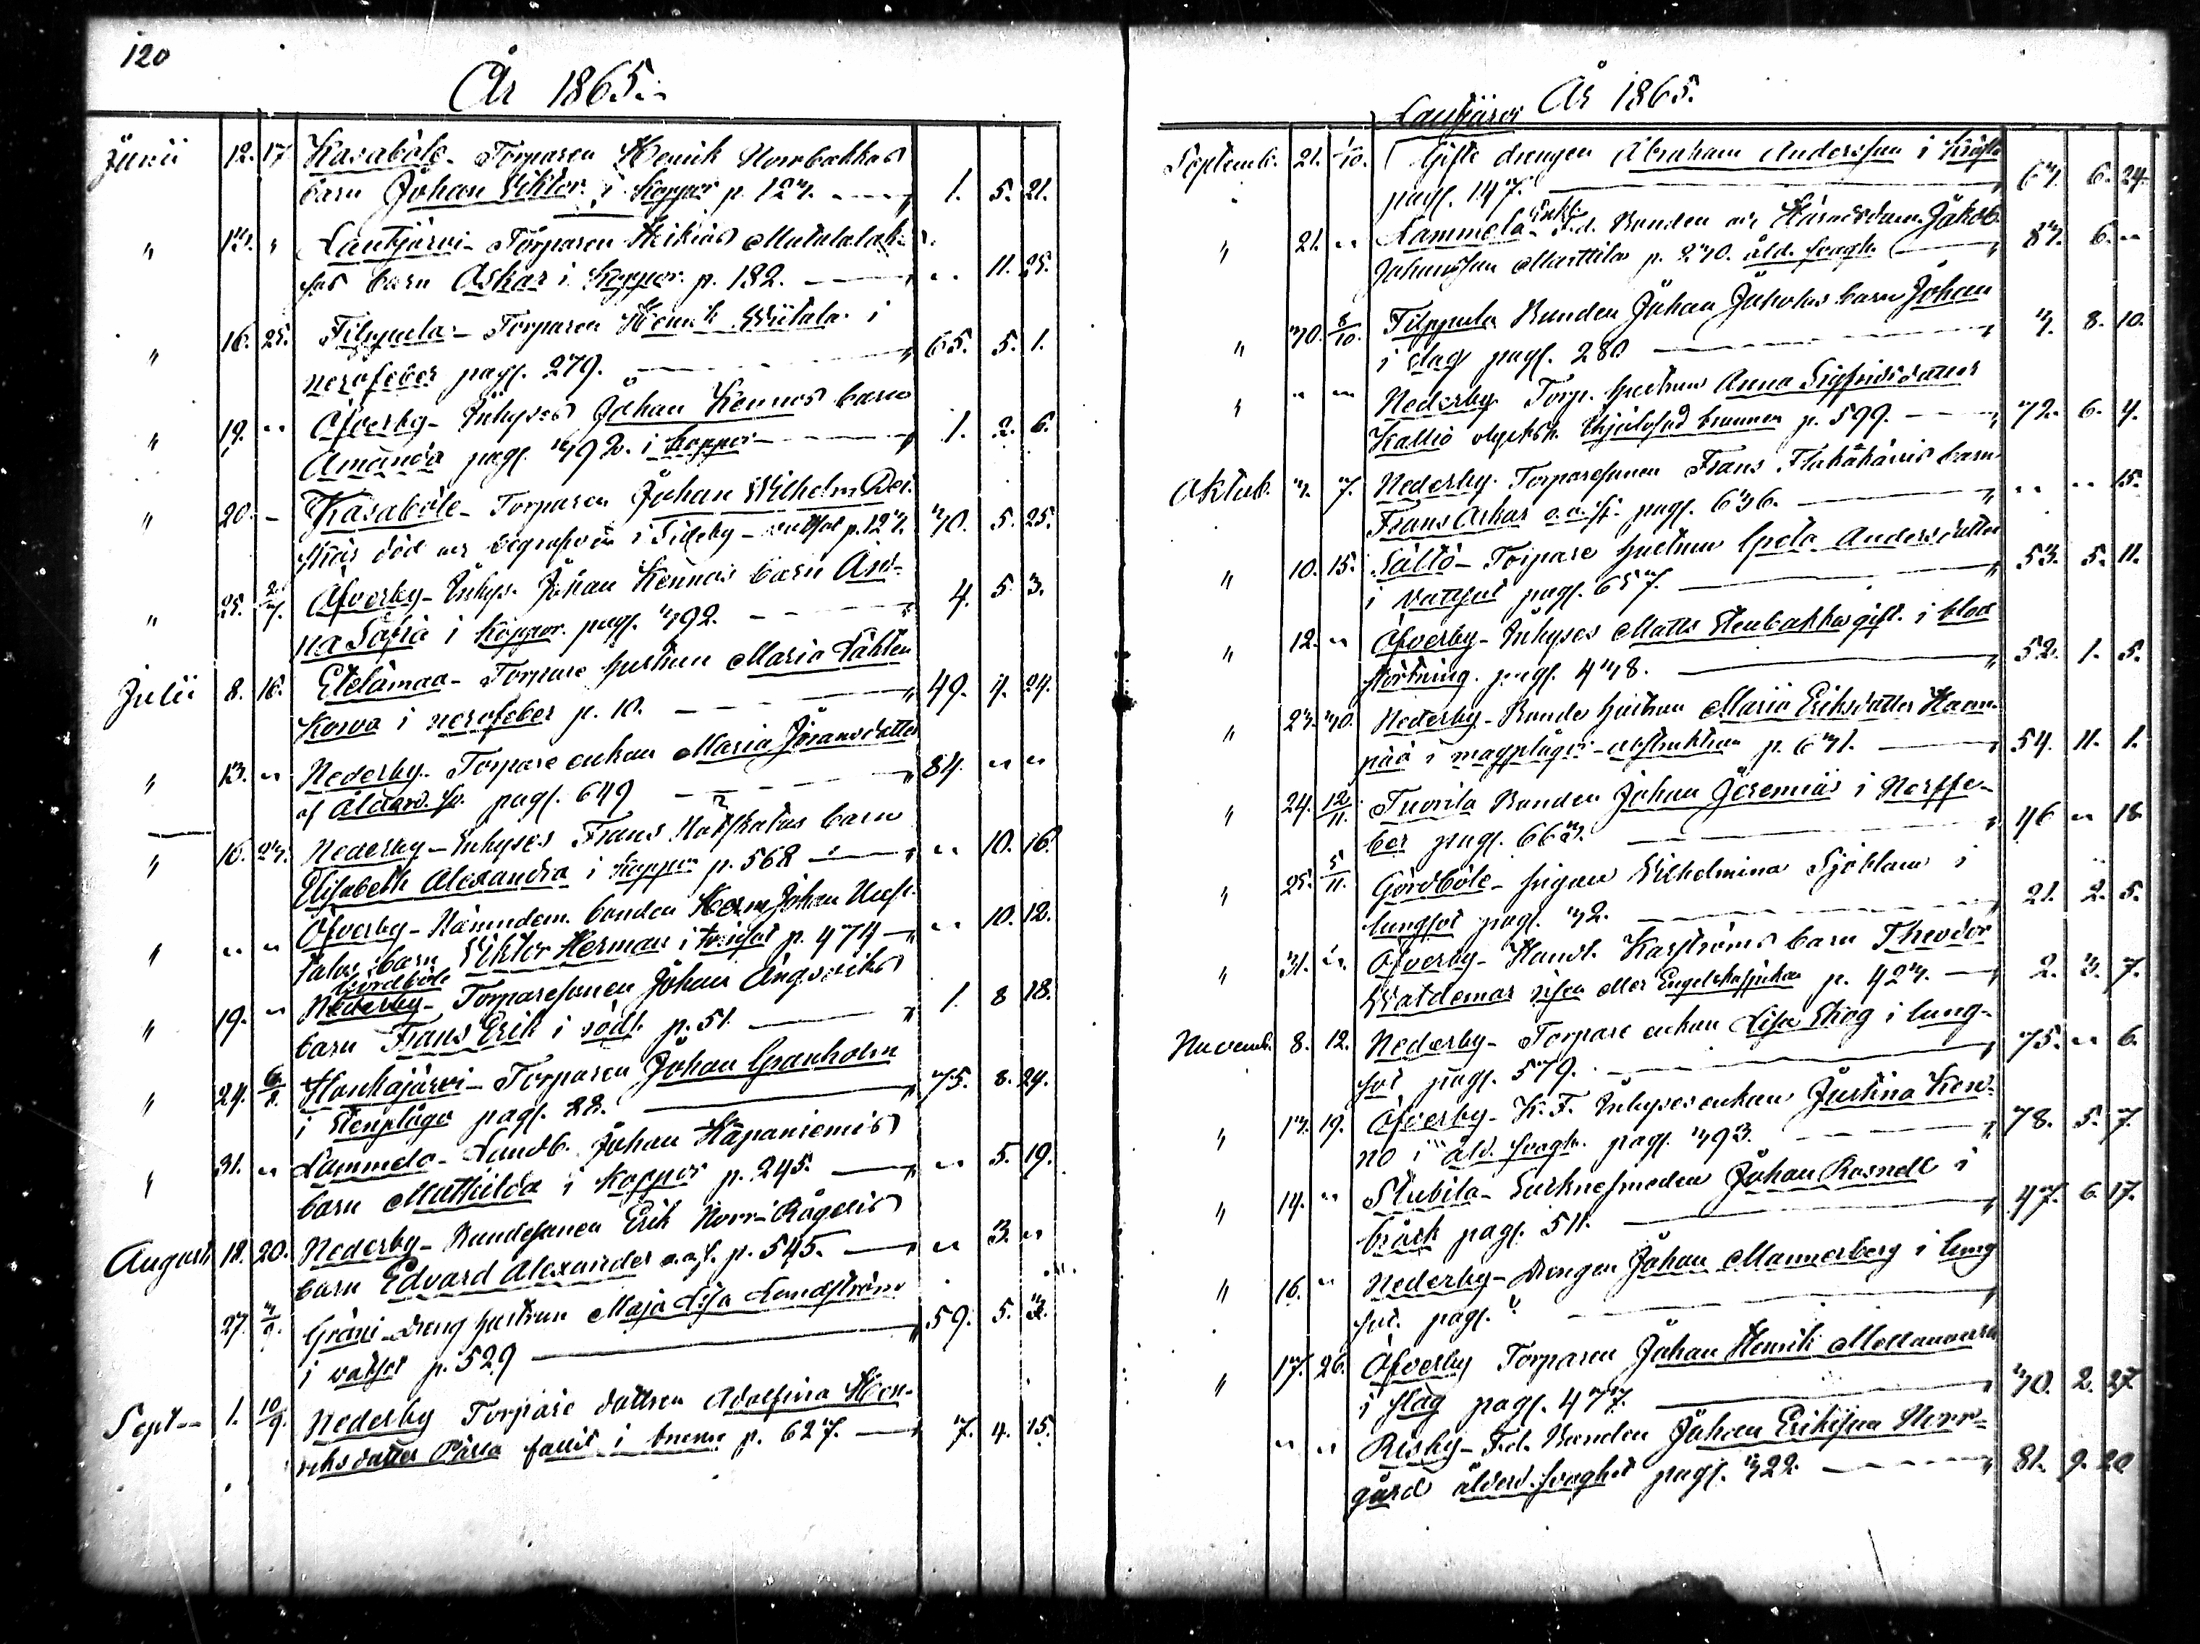 120
År 1865.
Junii 12. 17 Kasaböle- Torparen Henrik Norrbakkas
barn Johan Viktor i koppor p. 127. 1. 5. 21.
" " Lautjärvi- Torparen
barn Oskar i koppor p. 182. " 11. 25.
" 16. 25. Filppula- Torparen Henrik Wiitala i
nervfeber pag. 279. 65. 5. 1.
" 19. " Öfverby- Inhyses Johan Kennos barn
Amanda pag. 392. i koppor 1. 2. 6.
" 20. - Kasaböle- Torparen Johan Wilhelm
död och begrafven i p. 127. 30. 5. 25.
" 25. 2/7. Öfverby- Inhys. Johan Kennos barn An-
na Sofia i koppor pag. 392. 4. 5. 3.
Julii 8. 16. Etelämaa- Torpare hustrun Maria Lähten
korva i nervfeber p. 10. 49. 4. 24.
" 13. " Nederby- Torpare enkan Maria Johansdotter
af ålderd. sv. pag. 649 84. " "
" 16. 23. Nederby- Inhyses Frans barn
Elisabeth Alexandra i koppor p. 568 " 10. 16.
" " " Öfverby- Nämndem. bonden Herm Johan Uusi-
talos barn Viktor Herman i p. 474 " 10. 12.
Gördböle
" 19. " Nederby- Torparesonen Johan Ängsviks
barn Frans Erik i rödt. p. 51. 1. 8 18.
" 24. 6/8. Hanhajärvi- Torparen Johan Granholm
i stenplåga pag. 88. 75. 8. 24.
" 31. " Lammela- Landb. Johan Haapaniemis
barn Mathilda i koppor p. 245. " 5. 19.
August 18. 20. Nederby- Bondesonen Erik Norr-Rågels
barn Edvard Alexander o.a.s. p. 545. " 3. "
27. 3/9. Gräsi- dreng hustrun Maja Lisa Landström
i vatsot p. 529 59. 5. 3.
Sept 1. 10/9. Nederby Torpare dottren Adolfina Hen-
riksdotter Pärta p. 627. 7. 4. 15.
Lautjärvi År 1865.
Septemb. 21. 1/10. Gifte drengen Abraham Andersson i
pag. 147. 63. 6. 24.
Enkl.
" 21. " Lammela- F.d. Bonden och Häradsdom. Jakob
Johansson Marttila p. 230. åld. svagh. 83. 6. "
" 30. 8/10. Filppula Bonden Johan Jaholas barn Johan
i slag pag. 280 3. 8. 10.
" " " Nederby Torp. hustrun Anna Sigfridsdotter
Kallio olycksh. ihjälsjud brunnen p. 599. 72. 6. 4.
Oktob. 3. 7. Nederby- Torparesonen Frans barn
Frans Oskar o.a.s. pag. 636. " " 15.
" 10. 15. Sältö- Torpare hustrun Greta Andersdotter
i vattsot pag. 657. 53. 5. 11.
" 12. " Öfverby- Inhyses Matts Stenbakka gift. i blod
störtning. pag. 438. 52. 1. 5.
" 23. 30. Nederby- Bonde hustrun Maria Eriksdotter Haan-
pää i magplåga - obstruktion p. 631. 54. 11. 1.
" 24. 12/11. Tuorila Bonden Johan Jeremias i Nerffe-
ber pag. 663. 46 " 18
" 25. 5/11. Gördböle- pigan Wilhelmina Sjöblom i
lungsot pag. 32. 21. 2. 5.
" 31. " Öfverby- Handl. Karströms barn Theodor
Waldemar eller Engelska sjukan p. 423. 2. 3. 7.
Novemb. 8. 12. Nederby- Torpare enkan Lisa Skog i lung-
sot pag. 579. 75. " 6.
" 13. 19. Öfverby- K.F. Inhyses enkan Justina Ken-
no i åld. svagh. pag. 393. 78. 5. 7.
" 14. " Stubila- Socknesmeden Johan Rosnell i
bråck pag. 511. 47. 6. 17.
" 16. " Nederby- Drengen Johan Mannerberg i lung
sot. pag.
" 17. 26. Öfverby Torparen Johan Henrik
i slag pag. 477. 30. 2. 27.
" " Risby- F.d. Bonden Johan Eriksson Norr-
gård ålderd. svaghet pag. 322. 81. 9. 20